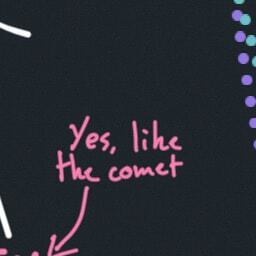 Yes, like
the comet